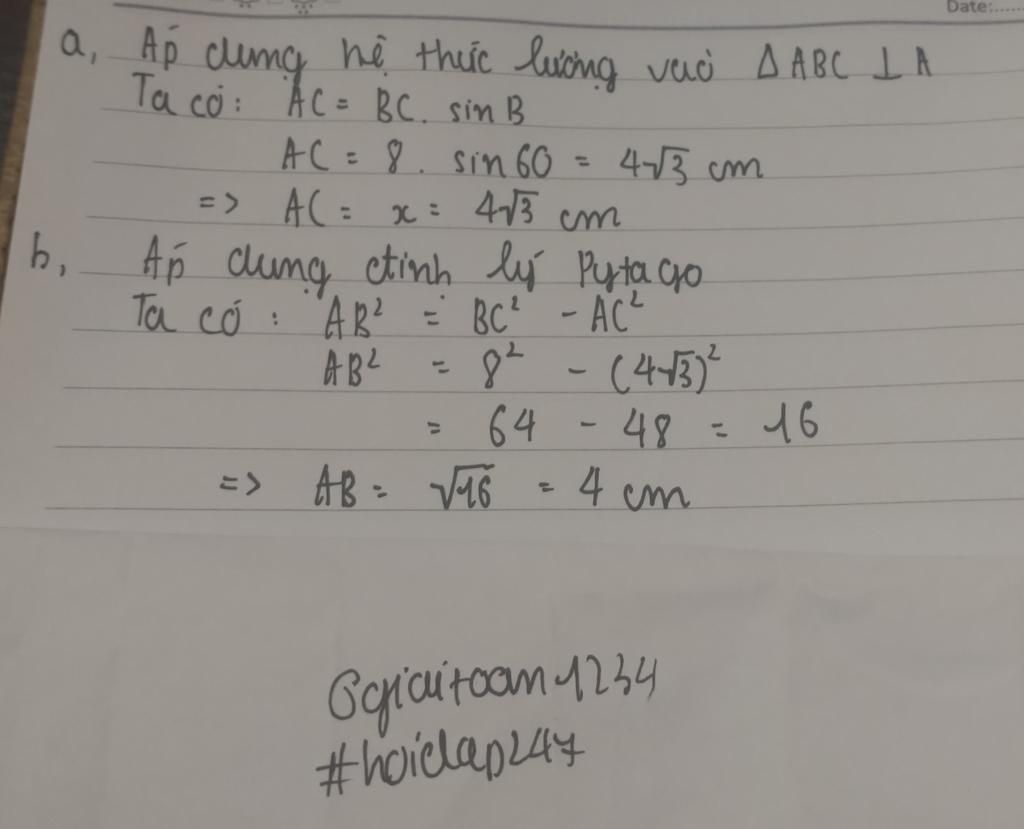 Date:......
a, Áp dụng hệ thức lượng vào Δ ABC ⊥ A
Ta có: AC = BC. sin B
AC = 8. sin 60 = 4√3 cm
=> AC = x = 4√3 cm
b, Áp dụng định lý Pytago
Ta có: AB² = BC² - AC²
AB² = 8² - (4√3)²
= 64 - 48 = 16
=> AB = √16 = 4 cm
@giaitoan1234
#hoidap247